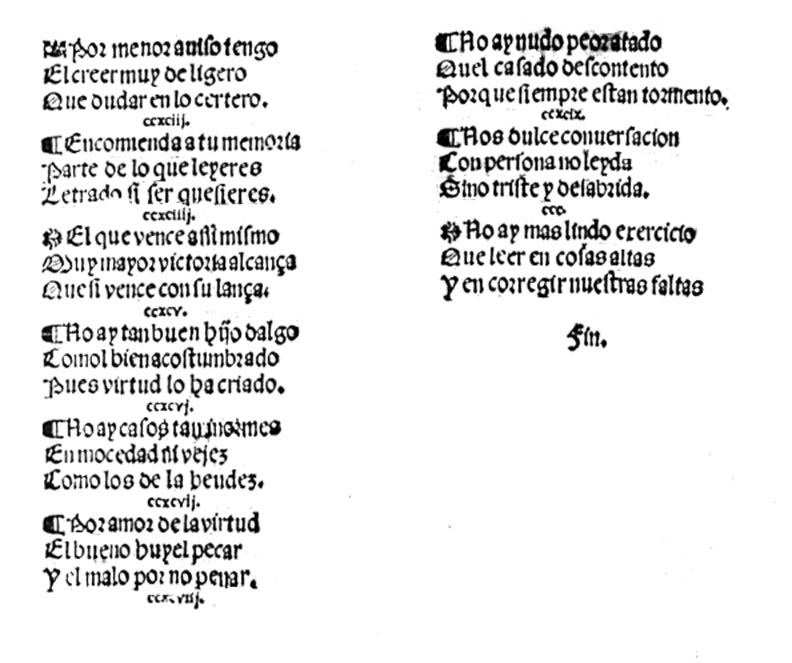 Por menor auiso tengo
El creer muy de ligero
Que dudar en lo certero.
ccxciij.
¶Encomienda a tu memoria
Parte de lo que leyeres
Letrado si ser quesieres.
ccxciiij.
El que vence assi mismo
Muy mayor victoria alcança
Que si vence con su lança.
ccxcv.
¶No ay tan buen hijo dalgo
Comol bien acostumbrado
Pues virtud lo ha criado.
ccxcvj.
¶No ay casos tan inormes
En mocedad ni vejez
Como los de la beudez.
ccxcvij.
¶Por amor de la virtud
El bueno huyel pecar
Y el malo por no penar.
ccxcviij.
¶No ay nudo peor atado
Quel casado descontento
Porque siempre estan tormento.
ccxcix.
¶Nos dulce conuersacion
Con persona no leyda
Sino triste y desabrida.
ccc.
No ay mas lindo exercicio
Que leer en cosas altas
Y en corregir nuestras faltas
Fin.